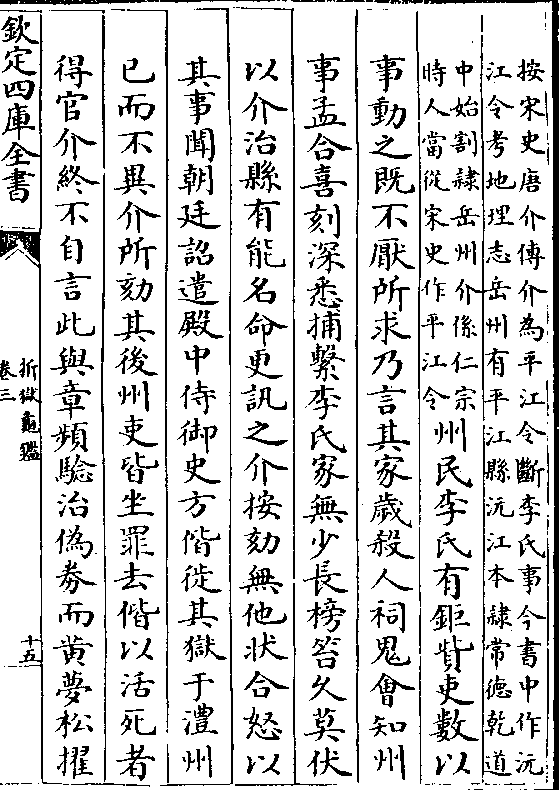 按宋史唐介傳介為平江令斷李氏事今書中作沅
江令考地理志岳州有平江縣沅江本隷常德乾道
中始割隷岳州介係仁宗
時人當從宋史作平江令
州民李氏有鉅貲吏數以
事動之既不厭所求乃言其家歲殺人祠鬼會知州
事孟合喜刻深悉捕繫李氏家無少長榜笞久莫伏
以介治縣有能名命更訊之介按劾無他狀合怒以
其事聞朝廷詔遣殿中侍御史方偕徙其獄于澧州
已而不異介所劾其後州吏皆坐罪去偕以活死者
得官介終不自言此與章頻驗治偽劵而黄夢松擢
欽定四庫全書
折獄龜鑑
卷三
十五